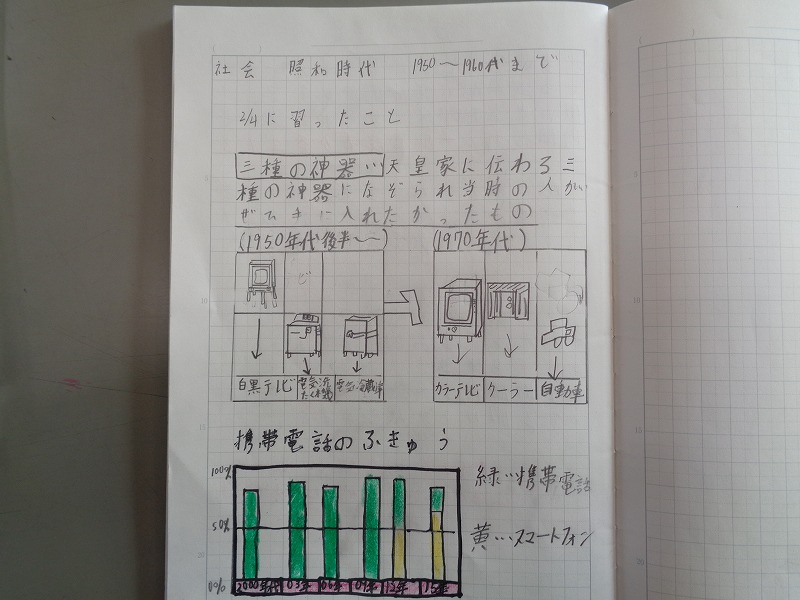 社会 昭和時代 1950〜1960代まで
2/4に習ったこと
三種の神器…天皇家に伝わる三
種の神器になぞられ当時の人が
ぜひ手に入れたかったもの
(1950年代後半〜) (1970年代)
白黒テレビ 電気洗たく機 電気冷蔵庫 カラーテレビ クーラー 自動車
携帯電話のふきゅう
100%
緑…携帯電話
50%
黄…スマートフォン
0% 2000年代 03年 06年 09年 12年 15年